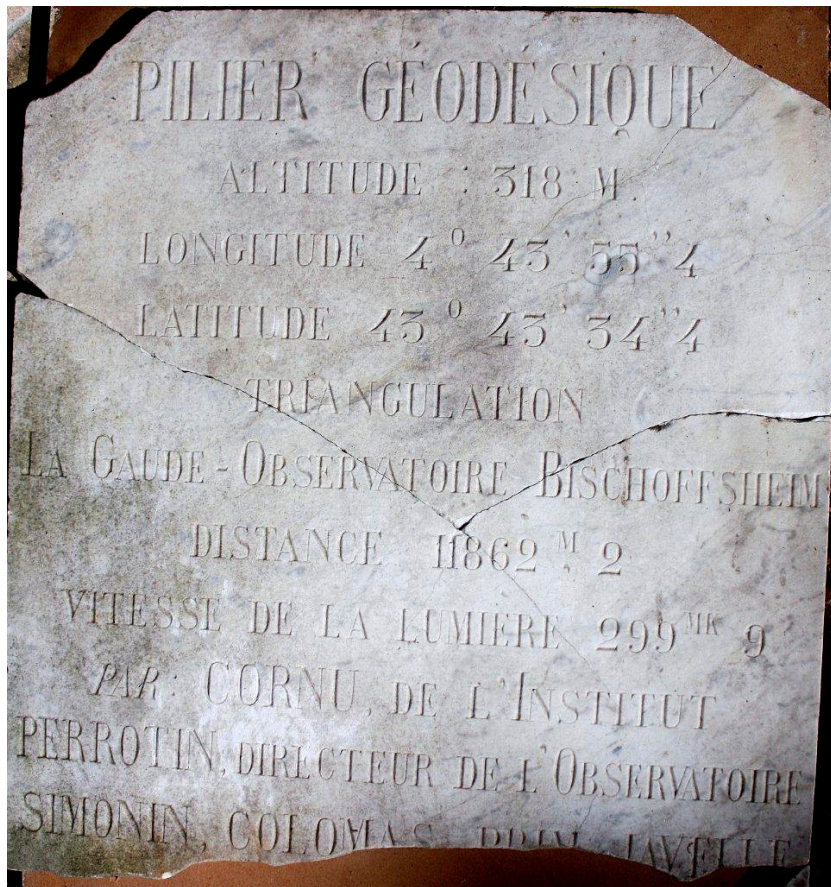 PILIER GÉODÉSIQUE
ALTITUDE : 318 M.
LONGITUDE 4° 43' 55'' 4
LATITUDE 43° 43' 34'' 4
TRIANGULATION
LA GAUDE - OBSERVATOIRE BISCHOFFSHEIM
DISTANCE 11862 M. 2
VITESSE DE LA LUMIÈRE 299 MK 9
PAR: CORNU, DE L'INSTITUT
PERROTIN, DIRECTEUR DE L'OBSERVATOIRE
SIMONIN, COLOMAS JAVELLE